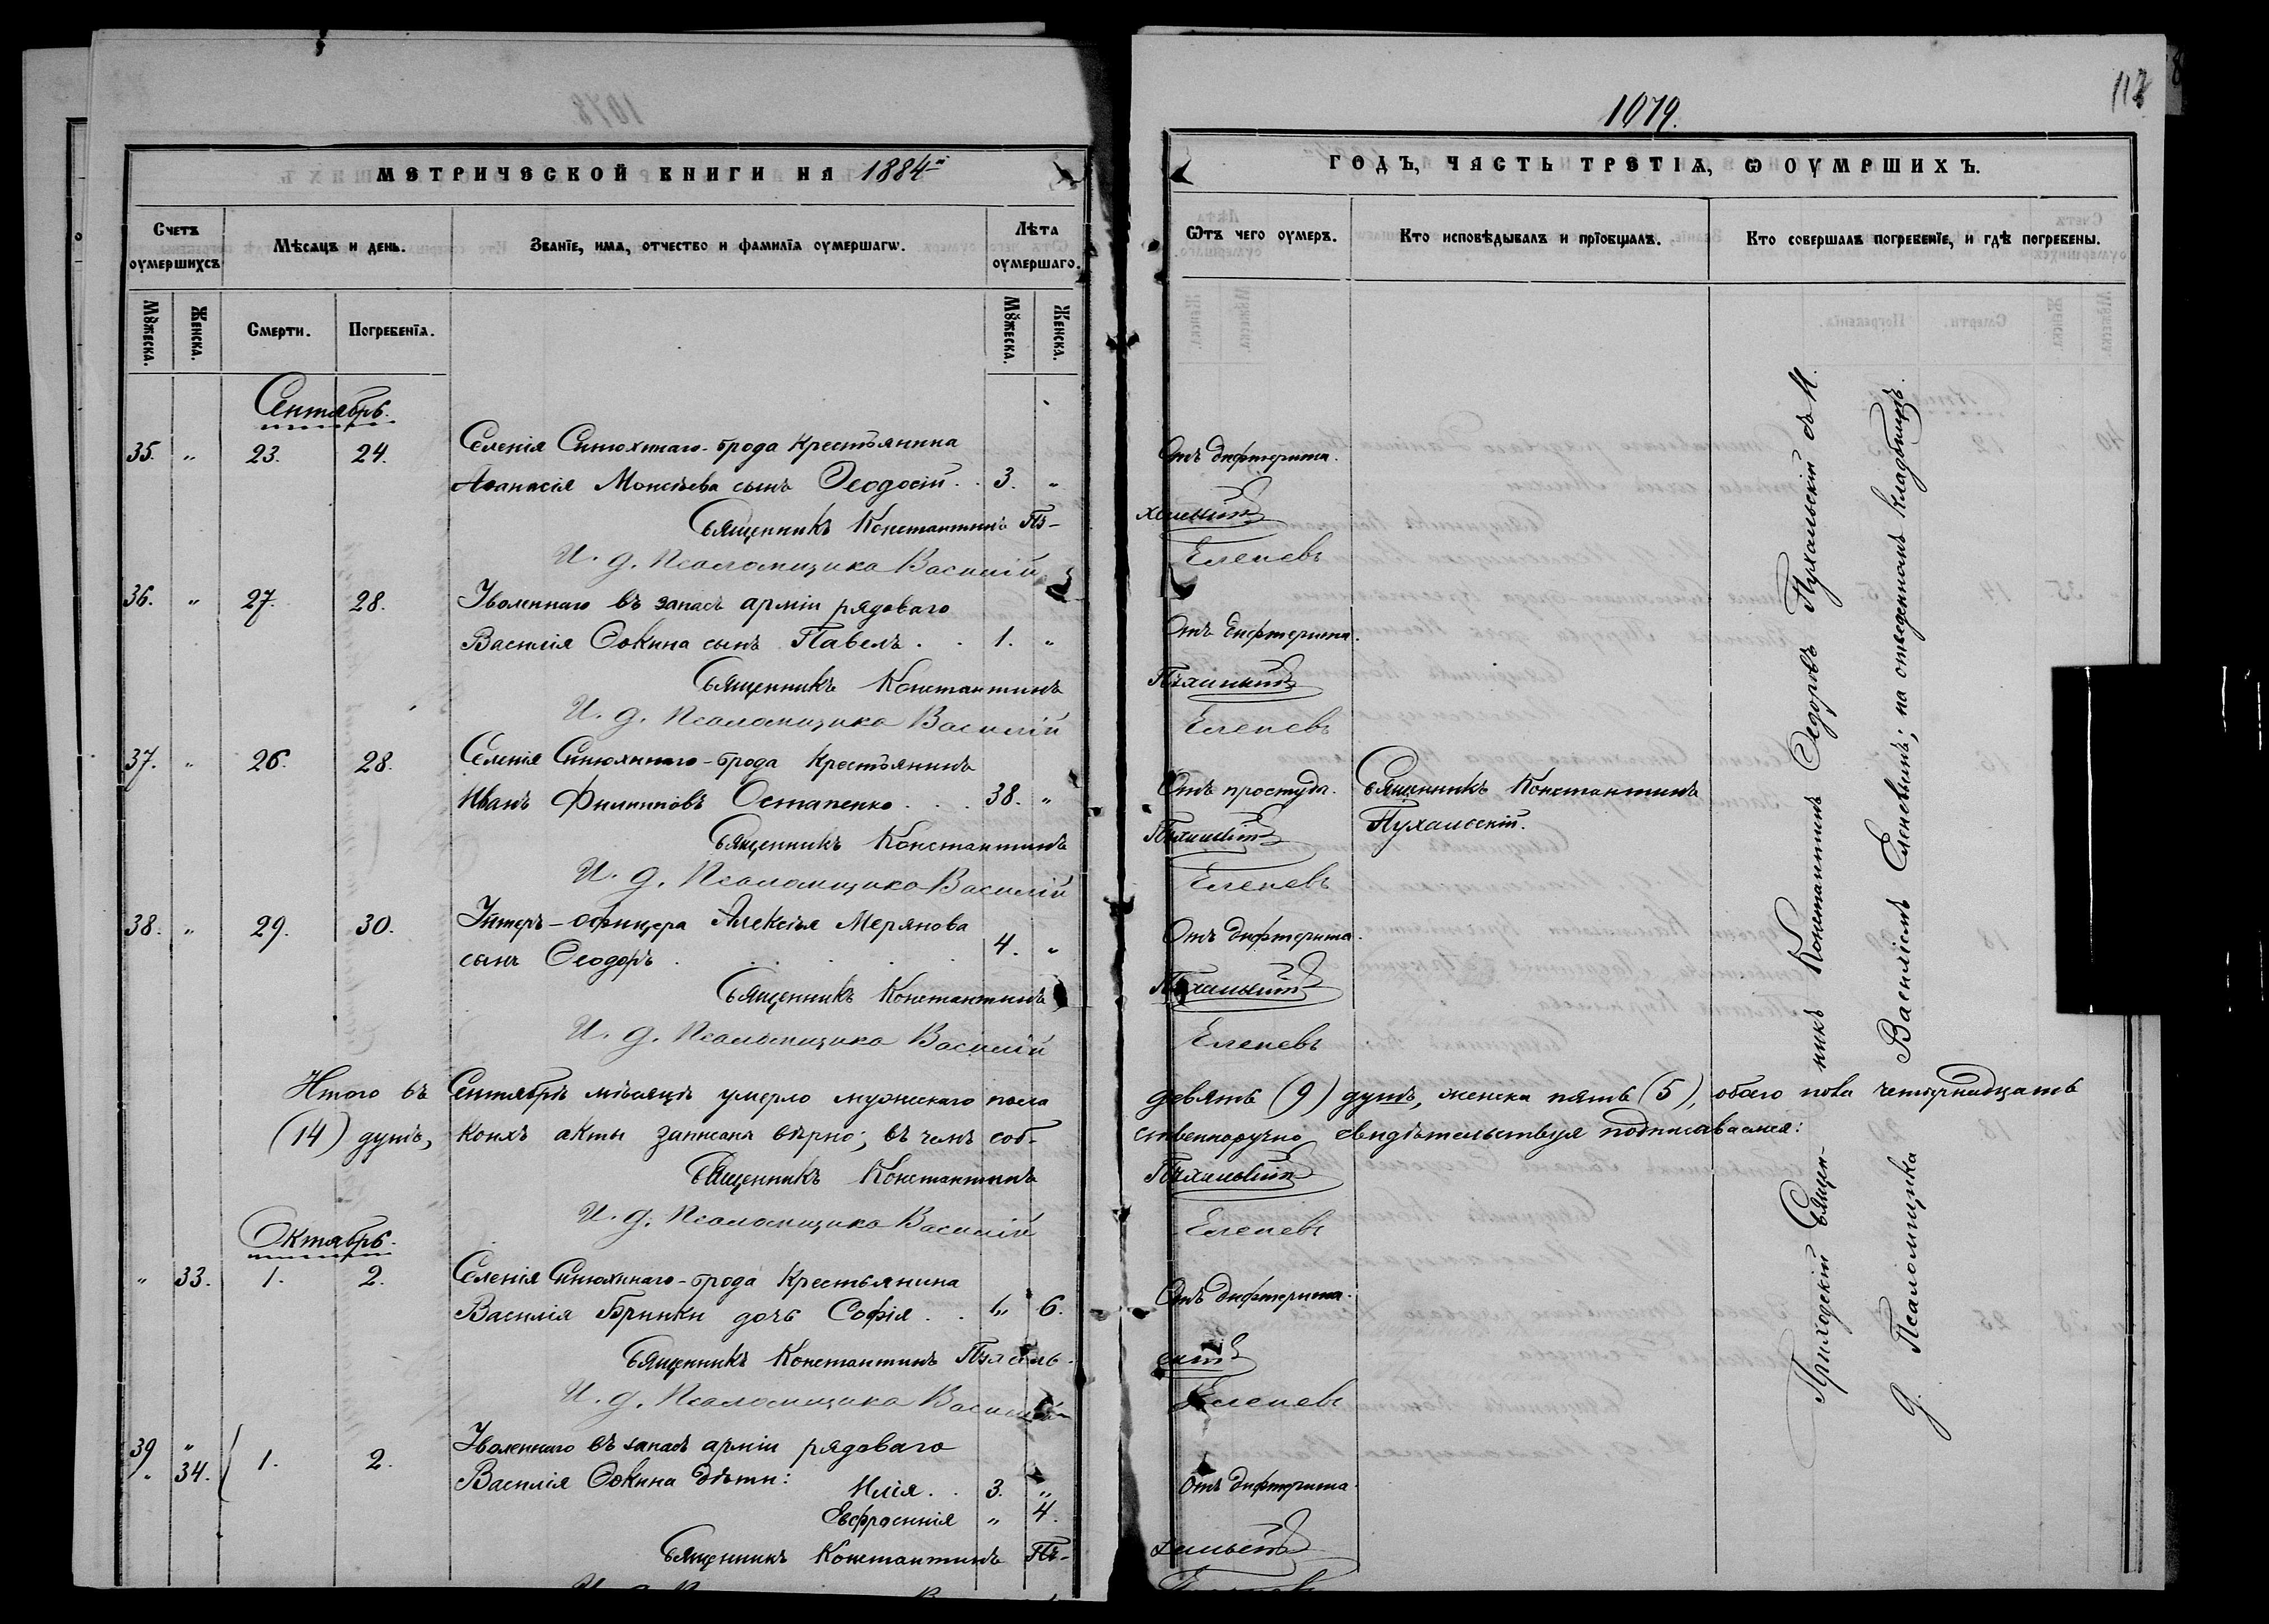 1079.
112
МЕТРИЧЕСКОЙ КНИГИ НА 1884й
ГОДЪ, ЧАСТЬ ТРЕТІѦ, Ѡ ОУМРШИХЪ.
Счетъ оумершихъ
Мѣсѧцъ и день.
Званїе, имѧ, отчество и фамилїѧ оумершагѡ.
Лѣта оумершаго.
Ѿтъ чего оумеръ.
Кто исповѣдывалъ и прїобщалъ.
Кто совершалъ погребенїе, и гдѣ погребены.
Мꙋжеска.
Женска.
Смерти.
Погребенїѧ.
Мꙋжеска.
Женска.
Сентябрь.
35. " 23. 24. Селенія Синюхинаго-брода крестьянина
Аѳанасія Моисѣева сынъ Ѳеодосій . . 3. " Отъ дифтерита.
Священникъ Константинъ Пу-
хальскій
И. д. Псаломщика Василій Еленевъ
36. " 27. 28. Уволеннаго въ запасъ арміи рядоваго
Василія Ѳокина сынъ Павелъ . . 1. " Отъ дифтерита.
Священникъ Константинъ Пухальскій
И. д. Псаломщика Василій Еленевъ
37. " 26. 28. Селенія Синюхинаго-брода крестьянинъ
Иванъ Филипповъ Остапенко . . . 38. " Отъ простуды. Священникъ Константинъ
Пухальскій.
Священникъ Константинъ Пухальскій
И. д. Псаломщика Василій Еленевъ
38. " 29. 30. Унтеръ-офицера Алексѣя Мерянова
сынъ Ѳеодоръ . . . . . 4. " Отъ дифтерита.
Священникъ Константинъ Пухальскій
И. д. Псаломщика Василій Еленевъ
Итого въ Сентябрѣ мѣсяцѣ умерло мужескаго пола девять (9) душъ, женска пять (5), обоего пола четырнадцать
(14) душъ, коихъ акты записаны вѣрно; въ чемъ соб-ственноручно свидѣтельствуя подписаваемся:
Священникъ Константинъ Пухальскій
И. д. Псаломщика Василій Еленевъ
Октябрь.
" 33. 1. 2. Селенія Синюхинаго-брода крестьянина
Василія Бринки дочь Софія . . " 6. Отъ дифтерита.
Священникъ Константинъ Пухаль-
скій
И. д. Псаломщика Василій Еленевъ
39 " 1. 2. Уволеннаго въ запасъ арміи рядоваго
" 34. Василія Ѳокина дѣти:
Илія . . 3. " Отъ дифтерита.
Евфросинія " 4.
Священникъ Константинъ Пу-
хальскій
Приходскій Священникъ Константинъ Ѳедоровъ Пухальскій съ И.
д. Псаломщика Василіемъ Еленевымъ; на отведенномъ кладбищѣ.